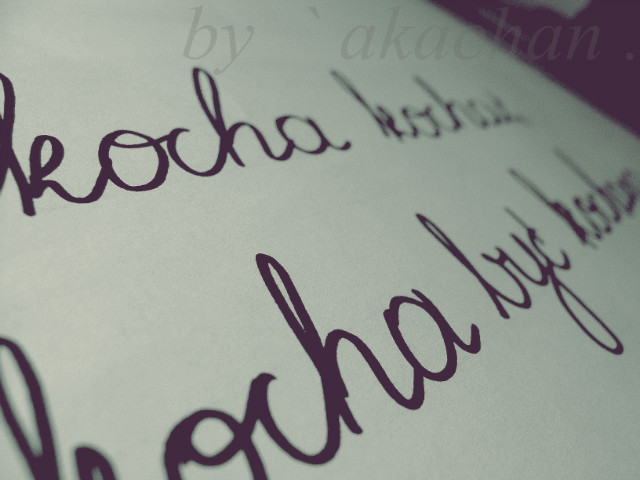 by `akachan .
kocha kocham
kocha być kocham